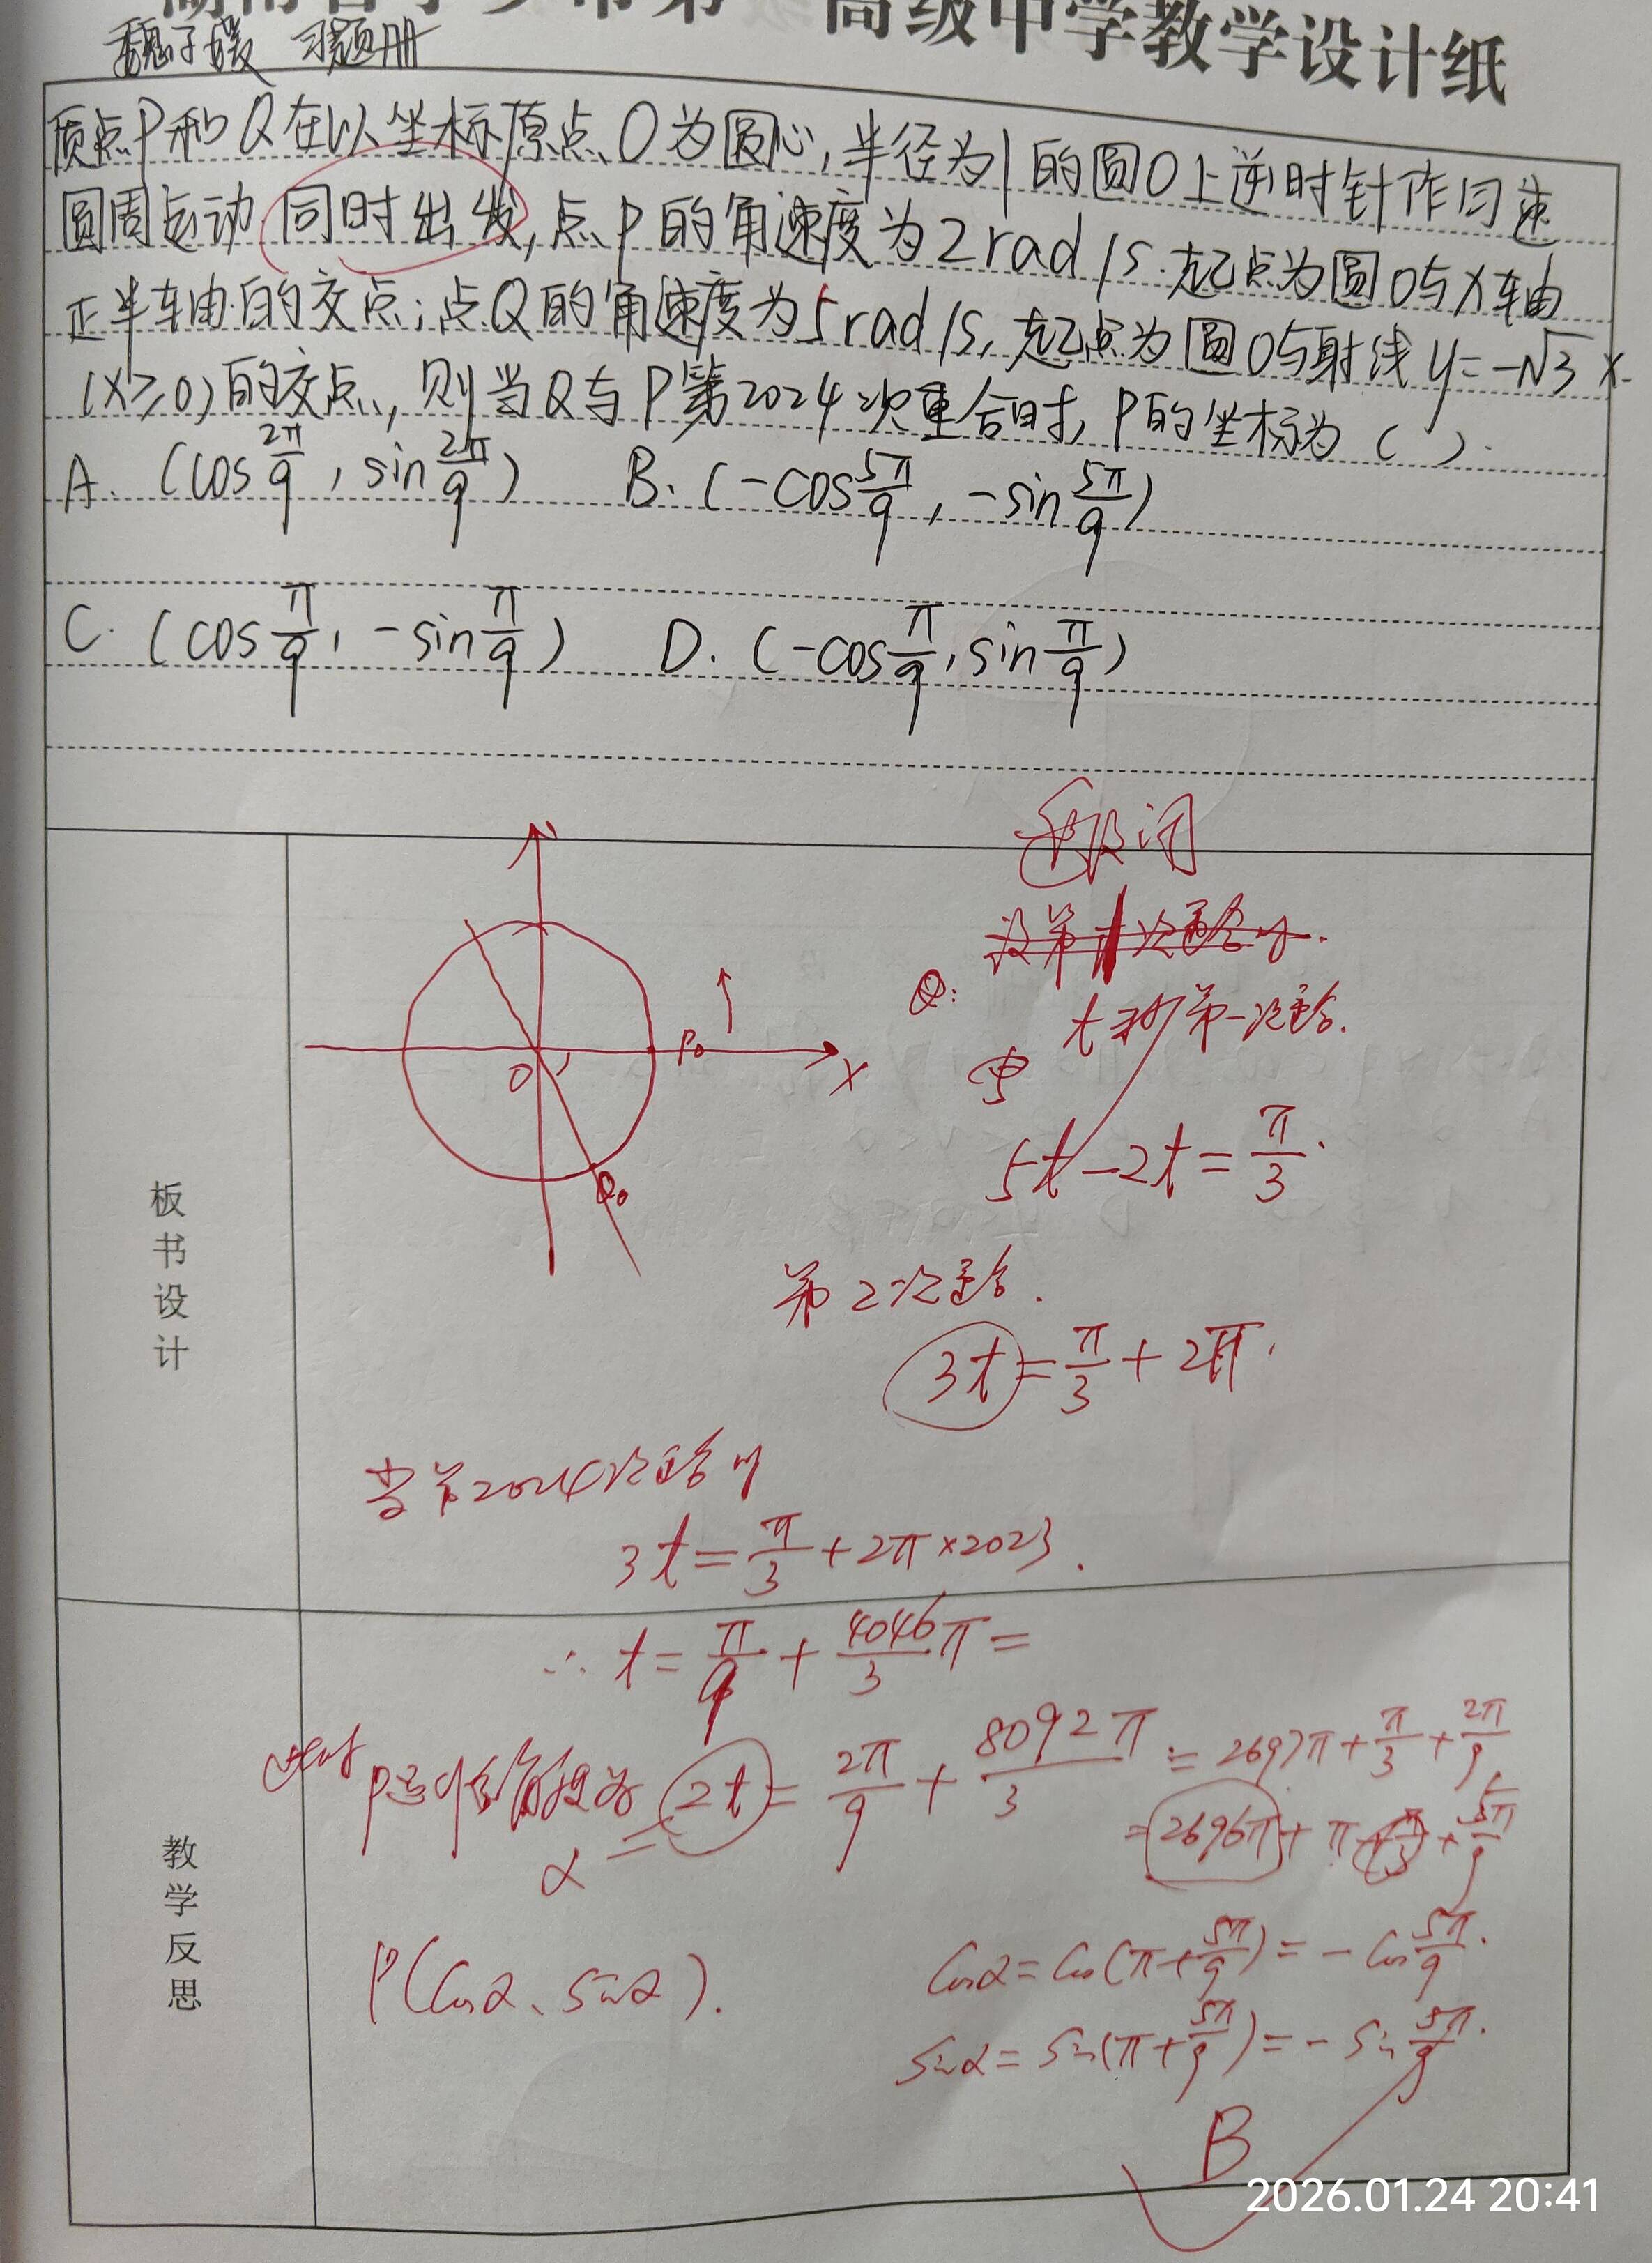 高级中学教学设计纸
习题册
质点P和Q在以坐标原点O为圆心,半径为1的圆O上逆时针作匀速
圆周运动.同时出发,点P的角速度为2rad/s.起点为圆O与x轴
正半轴的交点;点Q的角速度为5rad/s,起点为圆O与射线y=-√3x
(x≥0)的交点,则当Q与P第2024次重合时,P的坐标为( ).
A. (cos 2π/9, sin 2π/9) B. (-cos 5π/9, -sin 5π/9)
C. (cos π/9, -sin π/9) D. (-cos π/9, sin π/9)
Q:
t秒第一次重合.
O P₀ x
5t-2t=π/3.
Q₀
第2次重合.
3t=π/3+2π.
当第2024次重合时
3t=π/3+2π×2023.
∴ t=π/9+4046/3π=
2t=2π/9+8092π/3=2697π+π/3+2π/9
α= =2696π+π+5π/9
P(cosα、sinα).
cosα=cos(π+5π/9)=-cos5π/9.
sinα=sin(π+5π/9)=-sin5π/9.
B
板书设计
教学反思
2026.01.24 20:41